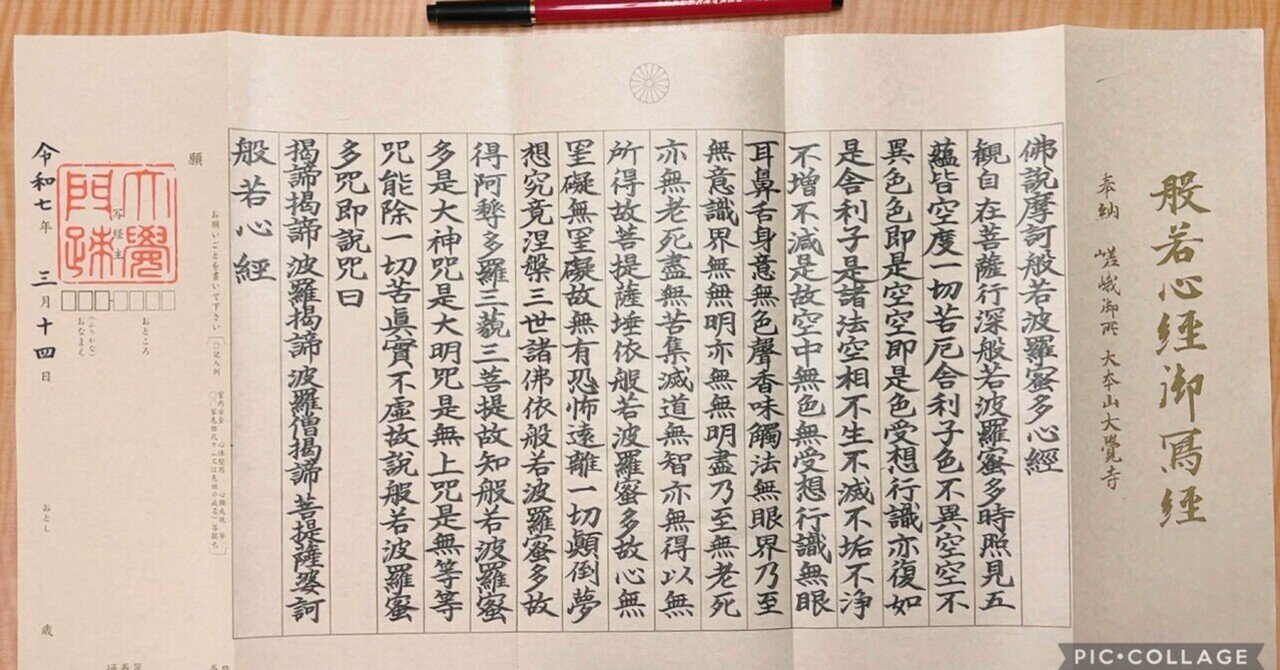 般若心経御冩経
奉納 嵯峨御所 大本山大覺寺
佛說摩訶般若波羅蜜多心經
観自在菩薩行深般若波羅蜜多時照見五
蘊皆空度一切苦厄舎利子色不異空空不
異色色即是空空即是色受想行識亦復如
是舎利子是諸法空相不生不滅不垢不浄
不增不減是故空中無色無受想行識無眼
耳鼻舌身意無色聲香味觸法無眼界乃至
無意識界無無明亦無無明盡乃至無老死
亦無老死盡無苦集滅道無智亦無得以無
所得故菩提薩埵依般若波羅蜜多故心無
罣礙無罣礙故無有恐怖遠離一切顛倒夢
想究竟涅槃三世諸佛依般若波羅蜜多故
得阿耨多羅三藐三菩提故知般若波羅蜜
多是大神咒是大明咒是無上咒是無等等
咒能除一切苦眞實不虚故說般若波羅蜜
多咒即說咒曰
揭諦揭諦 波羅揭諦 波羅僧揭諦 菩提薩婆訶
般若心經
願
お願いごとを書いて下さい
記入例
家内安全 心体堅固 心願成就 等
大覺門跡
写経主
おところ
(ふりがな)
おなまえ
おとし 歳
令和七年 三月十四日
PIC•COLLAGE